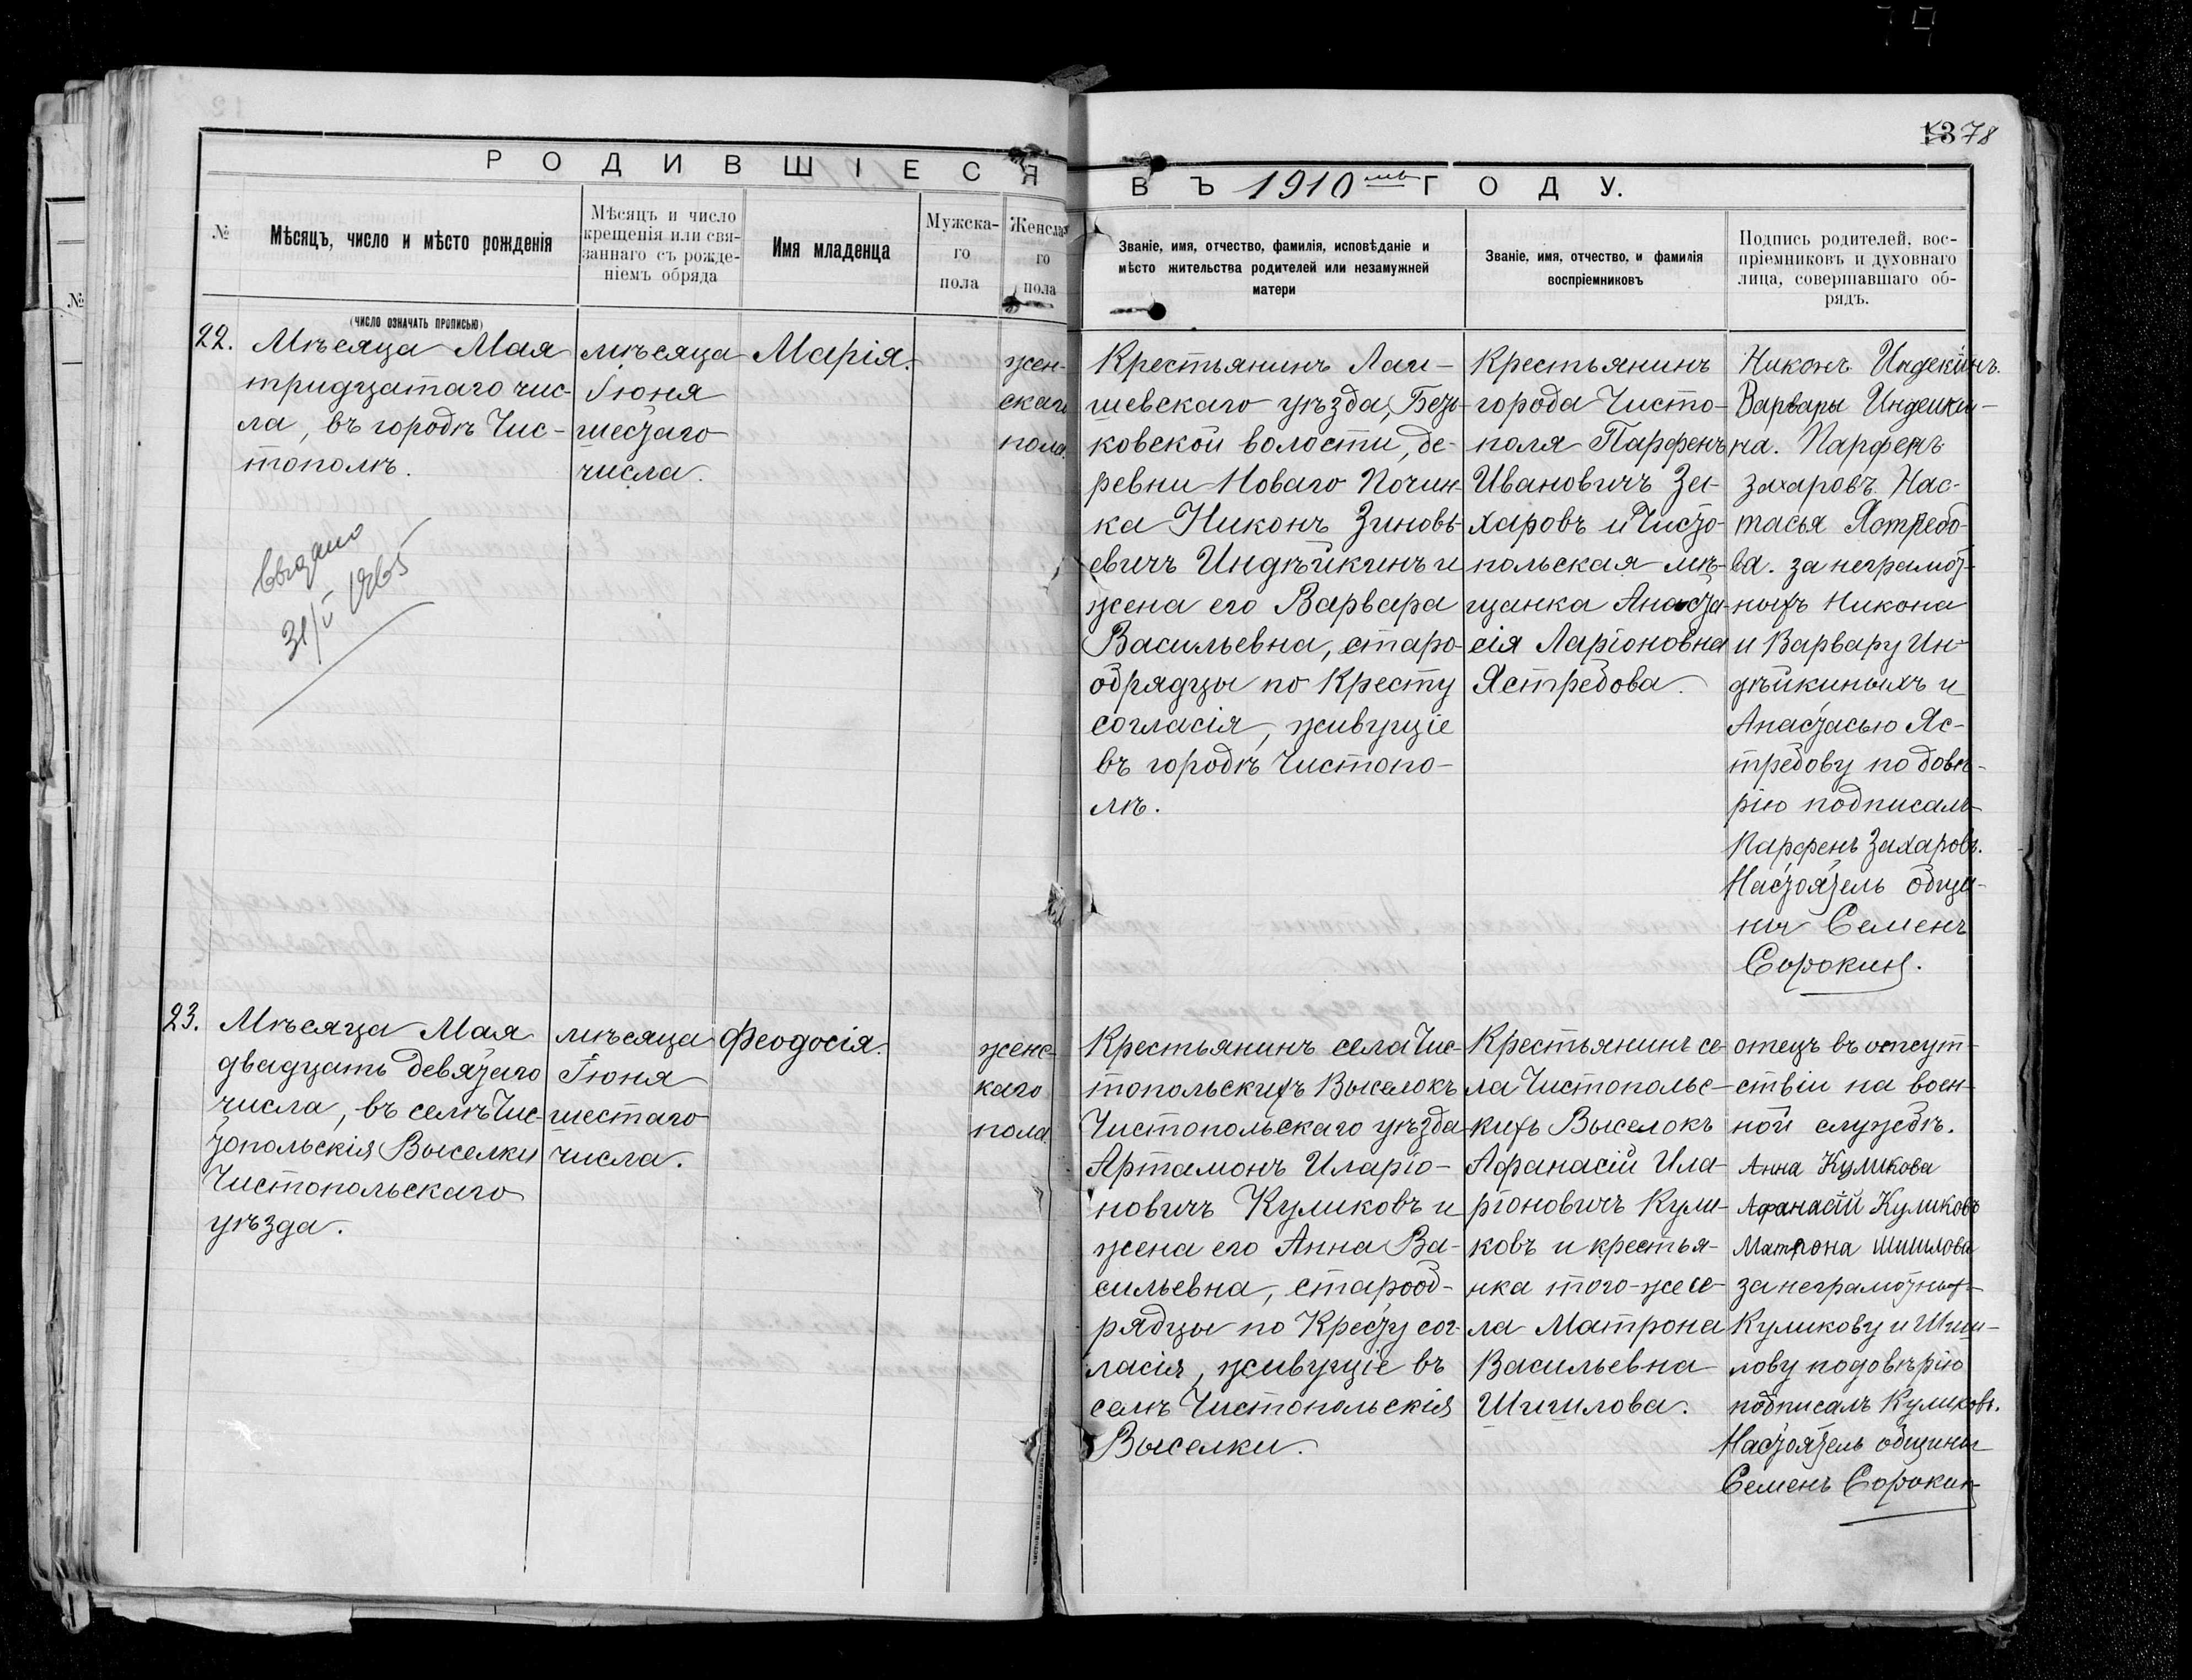 1378
РОДИВШІЕСЯ
ВЪ 1910мъ ГОДУ.
№
Мѣсяцъ, число и мѣсто рожденія
Мѣсяцъ и число
крещенія или свя-
заннаго съ рожде-
ніемъ обряда
Имя младенца
Мужска-
го
пола
Женска-
го
пола
Званіе, имя, отчество, фамилія, исповѣданіе и
мѣсто жительства родителей или незамужней
матери
Званіе, имя, отчество, и фамилія
воспріемниковъ
Подпись родителей, вос-
пріемниковъ и духовнаго
лица, совершавшаго об-
рядъ.
№
(число означать прописью)
22.
Мѣсяца Мая
тридцатаго чис-
ла, въ городѣ Чис-
тополѣ.
Выдано
31/V 1965
мѣсяца
Іюня
шестаго
числа.
Марія.
жен-
скаго
пола.
Крестьянинъ Лаи-
шевскаго уѣзда, Безь-
ковской волости, де-
ревни Новаго Почин-
ка Никонъ Зиновь-
евичъ Индѣйкинъ и
жена его Варвара
Васильевна, старо-
обрядцы по Кресту
согласія, живущіе
въ городѣ Чистопо-
лѣ.
Крестьянинъ
города Чисто-
поля Парфенъ
Ивановичъ За-
харовъ и Чисто-
польская мѣ-
щанка Анаста-
сія Ларіоновна
Ястребова.
Никонъ Индекинъ.
Варвары Индейки-
на. Парфенъ
Захаровъ. Нас-
тасья Ястребо-
ва. За неграмот-
ныхъ Никона
и Варвару Ин-
дѣйкиныхъ и
Анастасью Яс-
требову по довѣ-
рію подписалъ
Парфенъ Захаровъ.
Настоятель общи-
ны Семенъ
Сорокин.
23.
Мѣсяца Мая
двадцать девятаго
числа, въ селѣ Чис-
топольскія Выселки
Чистопольскаго
уѣзда.
мѣсяца
Іюня
шестаго
числа.
Феодосія.
женс-
каго
пола
Крестьянинъ села Чис-
топольскихъ Выселокъ
Чистопольскаго уѣзда
Артамонъ Иларіо-
новичъ Куликовъ и
жена его Анна Ва-
сильевна, старооб-
рядцы по Кресту сог-
ласія, живущіе въ
селѣ Чистопольскія
Выселки.
Крестьянинъ се-
ла Чистопольс-
кихъ Выселокъ
Афанасій Ила-
ріоновичъ Кули-
ковъ и крестья-
нка того-же се-
ла Матрона
Васильевна
Шишлова.
отецъ въ отсут-
ствіи на воен-
ной службѣ.
Анна Куликова
Афанасій Куликовъ
Матрона Шишлова
за неграмотных
Куликову и Шиш-
лову по довѣрію
подписалъ Куликовъ.
Настоятель общины
Семенъ Сорокин